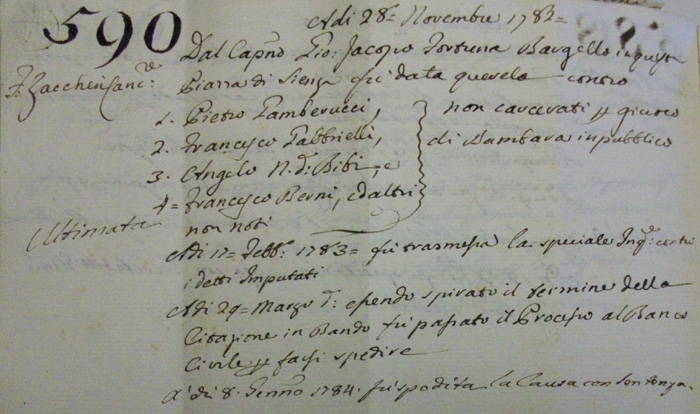 590
Adi 28= Novembre 1782=
F. Zacchei Canc:re
Dal Capno Gio: Jacopo Fortuna Bargello in questa
Piazza di Siena fù data querela contro
1. Pietro Tamberucci,
2. Francesco Gabbrielli,
3. Angelo N. d:o Bibi, e
4= Francesco Berni, ed altri
non noti
non carcerati p giuoco
di Bambara in pubblico
Ultimata
Adi 1= Febb: 1783= fù trasmessa la speciale Inqe: contro
i detti Imputati
Adi 29= Marzo d: essendo spirato il termine della
Citazione in Bando fù passato il Processo al Banco
Civile p farsi spedire
A di 8. Genno 1784. fù spedita la Causa con Sentenza